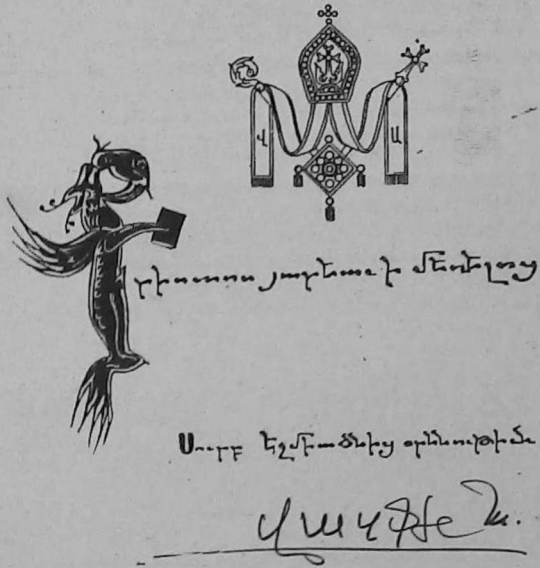 Վ Ա
Քրիստոս յարեաւ ի մեռելոց
Սուրբ Էջմիածնից օրհնութիւն